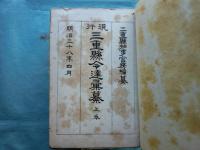 三重縣知事官房編纂
現行
三重縣令達彙纂
上卷
明治三十八年四月